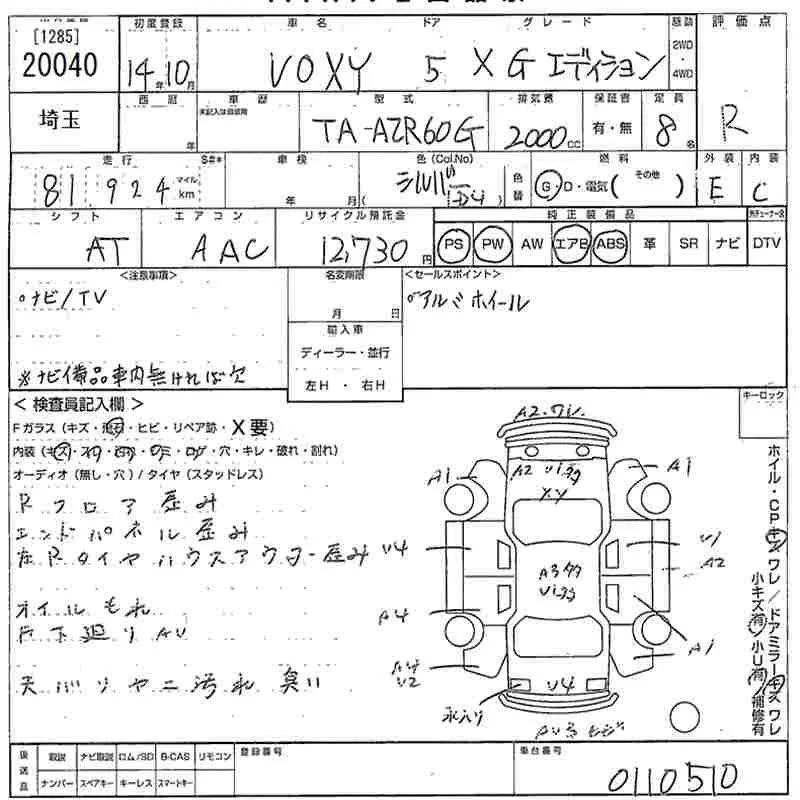 [1285]
20040
初度登録
14年10月
車名
VOXY
ドア
5
グレード
X G エディション
2WD
・
4WD
評価点
R
埼玉
西暦
年
車歴
型式
TA-AZR60G
排気量
2000cc
保証書
有・無
定員
8名
走行
81,924
マイル
km
S#*
車検
年 月
色(Col.No)
シルバー
色替
燃料
G・D・電気( その他 )
外装
E
内装
C
シフト
AT
エアコン
AAC
リサイクル預託金
12,730円
純正装備品
PS PW AW エアB ABS 革 SR ナビ DTV
<注意事項>
○ナビ/TV
※ナビ備品車内無ければ欠
名変期限
月 日
輸入車
ディーラー・並行
左H ・ 右H
<セールスポイント>
○アルミホイール
キーロック
＜検査員記入欄＞
Fガラス(キズ・飛石・ヒビ・リペア跡・X要)
内装(キズ・スレ・ヨゴレ・シミ・コゲ・穴・キレ・破れ・割れ)
オーディオ(無し・穴)/タイヤ(スタッドレス)
Rフロア歪み
エンドパネル歪み
左Rタイヤハウスアウター歪み
オイルもれ
下廻りAU
天バリヤニ汚れ 臭い
A2・ワレ
A1
A2
U1
XX
A1
U4
U1
A2
A3
U1
A4
A1
A4
U2
U4
水入り
ホイル・CPキズ ワレ/ドアミラーキズ ワレ
小キズ有 小U有 補修有
後送品
取説 ナビ取説 ロム/SD B-CAS リモコン
ナンバー スペアキー キーレス スマートキー
登録番号
車台番号
0110510